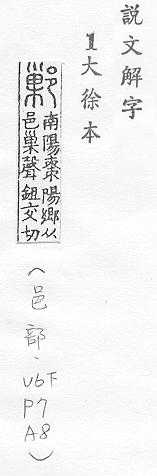 說文解字
1大徐本
鄛
南陽棗陽鄉从
邑巢聲鉏交切
（邑部、V6下
P7
A8）